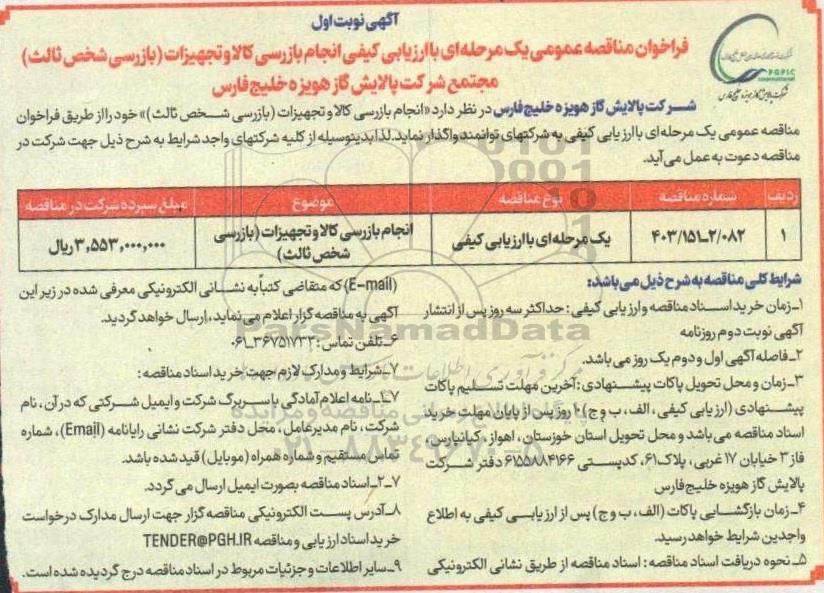 آگهی نوبت اول
فراخوان مناقصه عمومی یک مرحله‌ای با ارزیابی کیفی انجام بازرسی کالا و تجهیزات (بازرسی شخص ثالث)
مجتمع شرکت پالایش گاز هویزه خلیج‌فارس
PGPIC
شرکت پالایش گاز هویزه خلیج فارس
شرکت پالایش گاز هویزه خلیج‌فارس در نظر دارد «انجام بازرسی کالا و تجهیزات (بازرسی شخص ثالث)» خود را از طریق فراخوان
مناقصه عمومی یک مرحله‌ای با ارزیابی کیفی به شرکتهای توانمند واگذار نماید. لذا بدینوسیله از کلیه شرکتهای واجد شرایط به شرح ذیل جهت شرکت در
مناقصه دعوت به عمل می‌آید.
ردیف شماره مناقصه نوع مناقصه موضوع مبلغ سپرده شرکت در مناقصه
۱ ۴۰۳/۱۵۱-۲/۰۸۲ یک مرحله‌ای با ارزیابی کیفی انجام بازرسی کالا و تجهیزات (بازرسی شخص ثالث) ۳,۵۵۳,۰۰۰,۰۰۰ ریال
شرایط کلی مناقصه به شرح ذیل می‌باشد:
۱-زمان خرید اسناد مناقصه و ارزیابی کیفی: حداکثر سه روز پس از انتشار
آگهی نوبت دوم روزنامه
۲-فاصله آگهی اول و دوم یک روز می‌باشد.
۳-زمان و محل تحویل پاکات پیشنهادی: آخرین مهلت تسلیم پاکات
پیشنهادی (ارزیابی کیفی، الف، ب و ج) ۱۰ روز پس از پایان مهلت خرید
اسناد مناقصه می‌باشد و محل تحویل استان خوزستان، اهواز، کیانپارس،
فاز ۳ خیابان ۱۷ غربی، پلاک ۶۱، کدپستی ۶۱۵۵۸۸۴۱۶۶ دفتر شرکت
پالایش گاز هویزه خلیج‌فارس
۴-زمان بازگشایی پاکات (الف، ب و ج) پس از ارزیابی کیفی به اطلاع
واجدین شرایط خواهد رسید.
۵-نحوه دریافت اسناد مناقصه: اسناد مناقصه از طریق نشانی الکترونیکی
(E-mail) که متقاضی کتباً به نشانی الکترونیکی معرفی شده در زیر این
آگهی به مناقصه گزار اعلام می‌نماید، ارسال خواهد گردید.
۶-تلفن تماس: ۳۶۷۵۱۷۳۲-۰۶۱
۷-شرایط و مدارک لازم جهت خرید اسناد مناقصه:
۷-۱-نامه اعلام آمادگی با سربرگ شرکت و ایمیل شرکتی که در آن، نام
شرکت، نام مدیرعامل، محل دفتر شرکت نشانی رایانامه (Email)، شماره
تماس مستقیم و شماره همراه (موبایل) قید شده باشد.
۷-۲-اسناد مناقصه بصورت ایمیل ارسال می گردد.
۸-آدرس پست الکترونیکی مناقصه گزار جهت ارسال مدارک درخواست
خرید اسناد ارزیابی و مناقصه TENDER@PGH.IR
۹-سایر اطلاعات و جزئیات مربوط در اسناد مناقصه درج گردیده شده است.
ParsNamadData